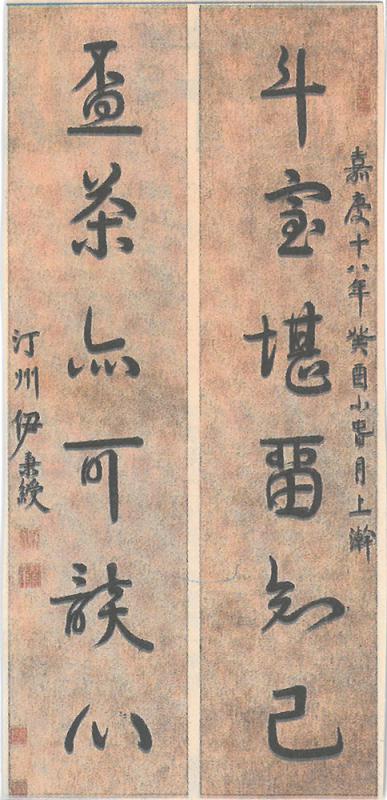 嘉慶十八年癸酉小春月上澣
斗室堪畱知己
盃茶亦可談心
汀州伊秉綬